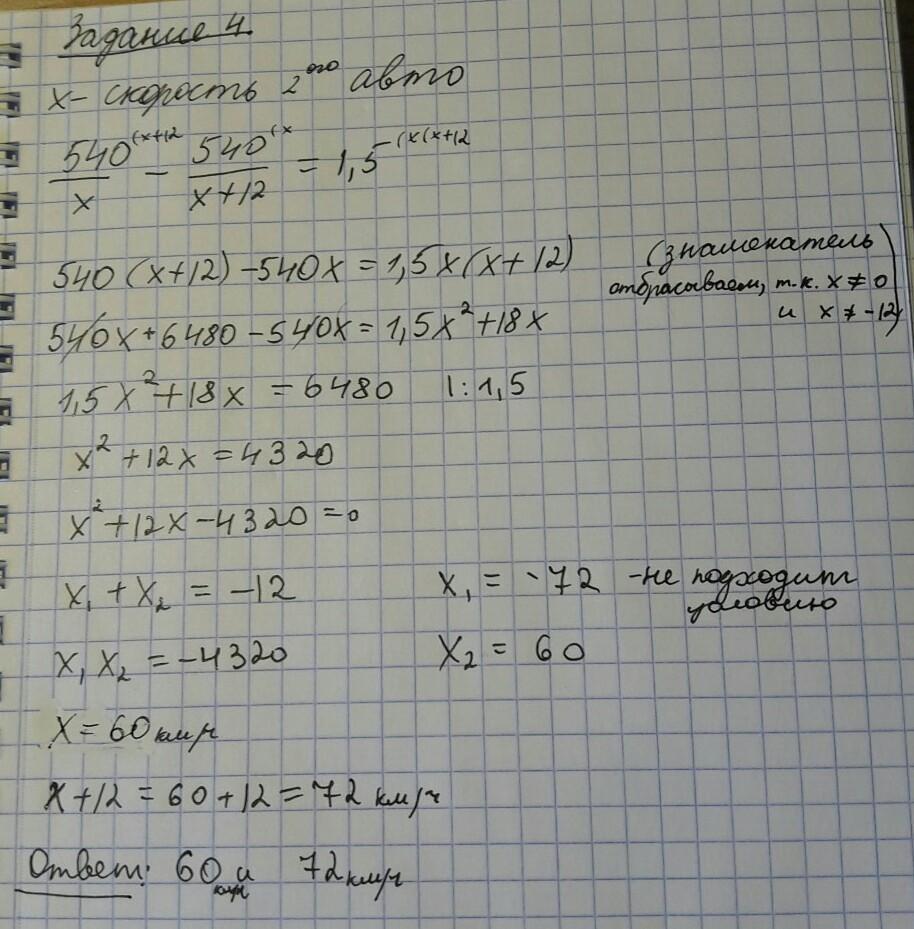 Задание 4.
x – скорость 2ого авто
540(x+12 / x – 540(x / x+12 = 1,5 –(x(x+12
540 (x+12) – 540x = 1,5x (x+12) (знаменатель
отбрасываем, т.к. x ≠ 0
и x ≠ -12)
540x + 6480 – 540x = 1,5x² + 18x
1,5x² + 18x = 6480 |: 1,5
x² + 12x = 4320
x² + 12x – 4320 = 0
x₁ + x₂ = –12 x₁ = -72 -не подходит
условию
x₁ x₂ = –4320 x₂ = 60
x = 60 км/ч
x+12 = 60+12 = 72 км/ч
Ответ: 60 км/ч и 72 км/ч